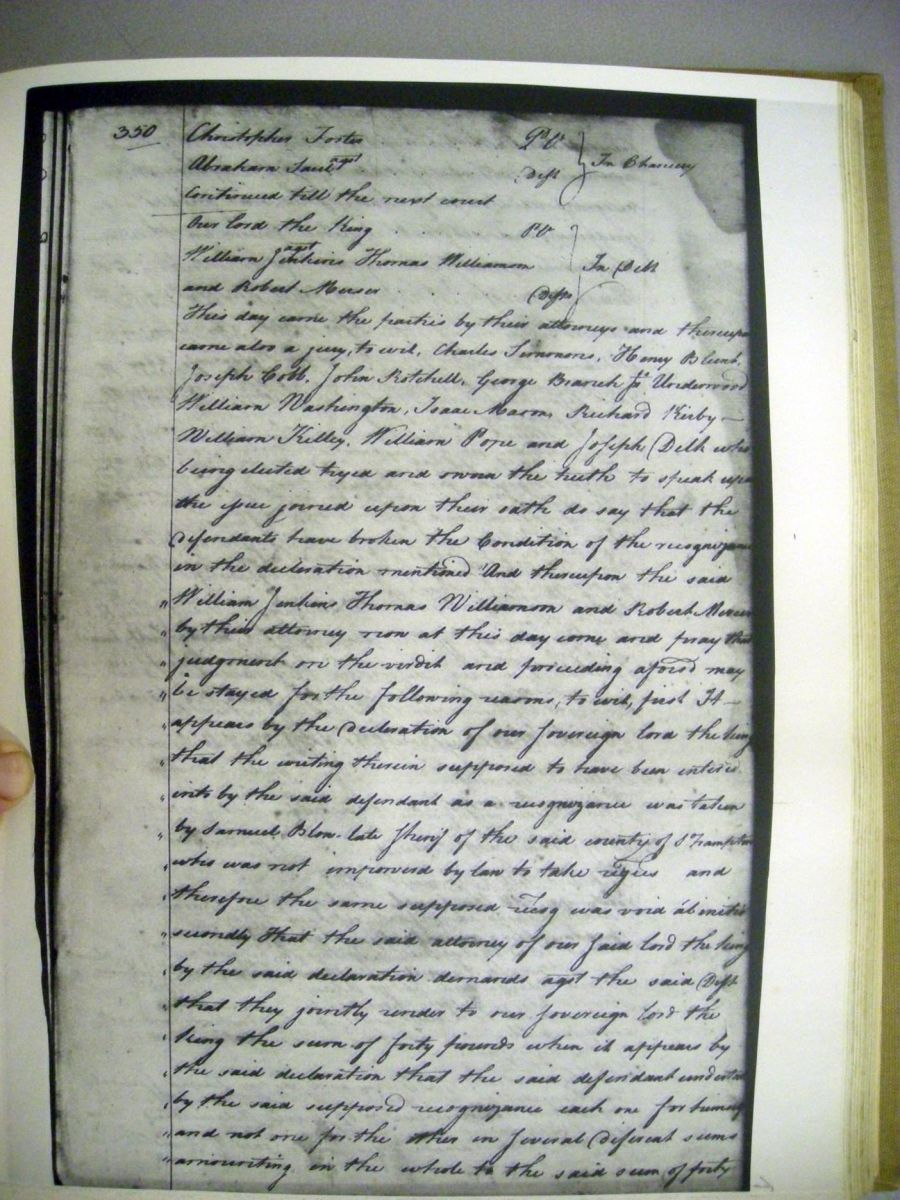 350
Christopher Foster Plt
agst
Abraham Deft
In Chancery
Continued till the next court
Our lord the King Plt
agst
William Jenkins Thomas Williamson
and Robert Mercer Defts
In Debt
This day came the parties by their attorneys and thereupon
came also a jury, to wit, Charles Simmons, Henry Blunt,
Joseph Cobb, John Rotchell, George Branch Jas Underwood
William Washington, Isaac Richard Kirby
William Kelley, William Pope and Joseph Delk who
being elected tryed and sworn the truth to speak upon
the issue joined upon their oath do say that the
defendants have broken the Condition of the recognizance
in the declaration mentioned And thereupon the said
" William Jenkins Thomas Williamson and Robert Mercer
" by their attorney now at this day come and pray that
" judgment on the virdit and proceeding aforsd may
" be stayed for the following reasons, to wit, first It
" appears by the declaration of our sovereign lord the king
" that the writing therein supposed to have been entered
" into by the said defendant as a recognizance was taken
" by Samuel Blow late sherif of the said county of S'hampton
" who was not impowerd by law to take and
" therefore the same supposed recog was void ab initio
" secondly that the said attorney of our said lord the king
" by the said declaration demands agst the said Deft
" that they jointly render to our sovereign lord the
" king the sum of forty pounds when it appears by
" the said declaration that the said defendant
" by the said supposed recognizance each one for himself
" and not one for the other in several diferent sums
" amounting in the whole to the said sum of forty